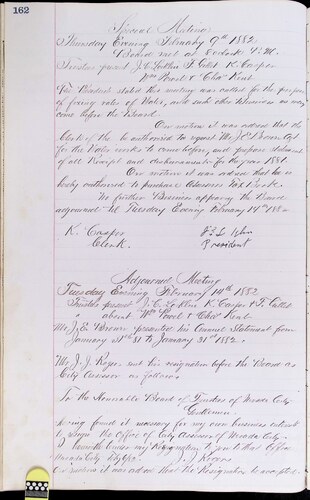 162
Special Meeting
Thursday Evening February 9th 1882
Board met at 8 o'clock P.M.
Trustees present J. C. F. Gillet K. Casper
Wm Powell & Chas Kent
President stated this meeting was called for the purpose
of fixing rates of Water, and such other Business as may
come before the Board
On motion it was ordered that the
Clerk of the be authorized to request Mr J. E. Brown Agt
for the Water works to come before, and prepare statement
of all Receipts and disbursements for the year 1881.
On motion it was ordered that he is
hereby authorized to purchase Assessors Book
No further Business appearing the Board
adjourned til Tuesday Evening February 14th 1882
K. Casper
Clerk.
President
Adjourned Meeting
Tuesday Evening February 14th 1882
Trustees present J. C. K. Casper & F. Gillet
absent Wm Powell & Chas Kent
Mr J. E. Brown presented his Annual Statement from
January 1st 81 to January 31st 1882.
Mr J. J. Rogers sent his resignation before the Board as
City Assessor as follows
To the Honorable Board of Trustees of Nevada City
Gentlemen
having found it necessary for my own business interest
to resign the Office of City Assessor of Nevada City.
I herewith tender my Resignation to you to that Office
Nevada City J. J. Rogers
On motion it was ordered that the Resignation be accepted